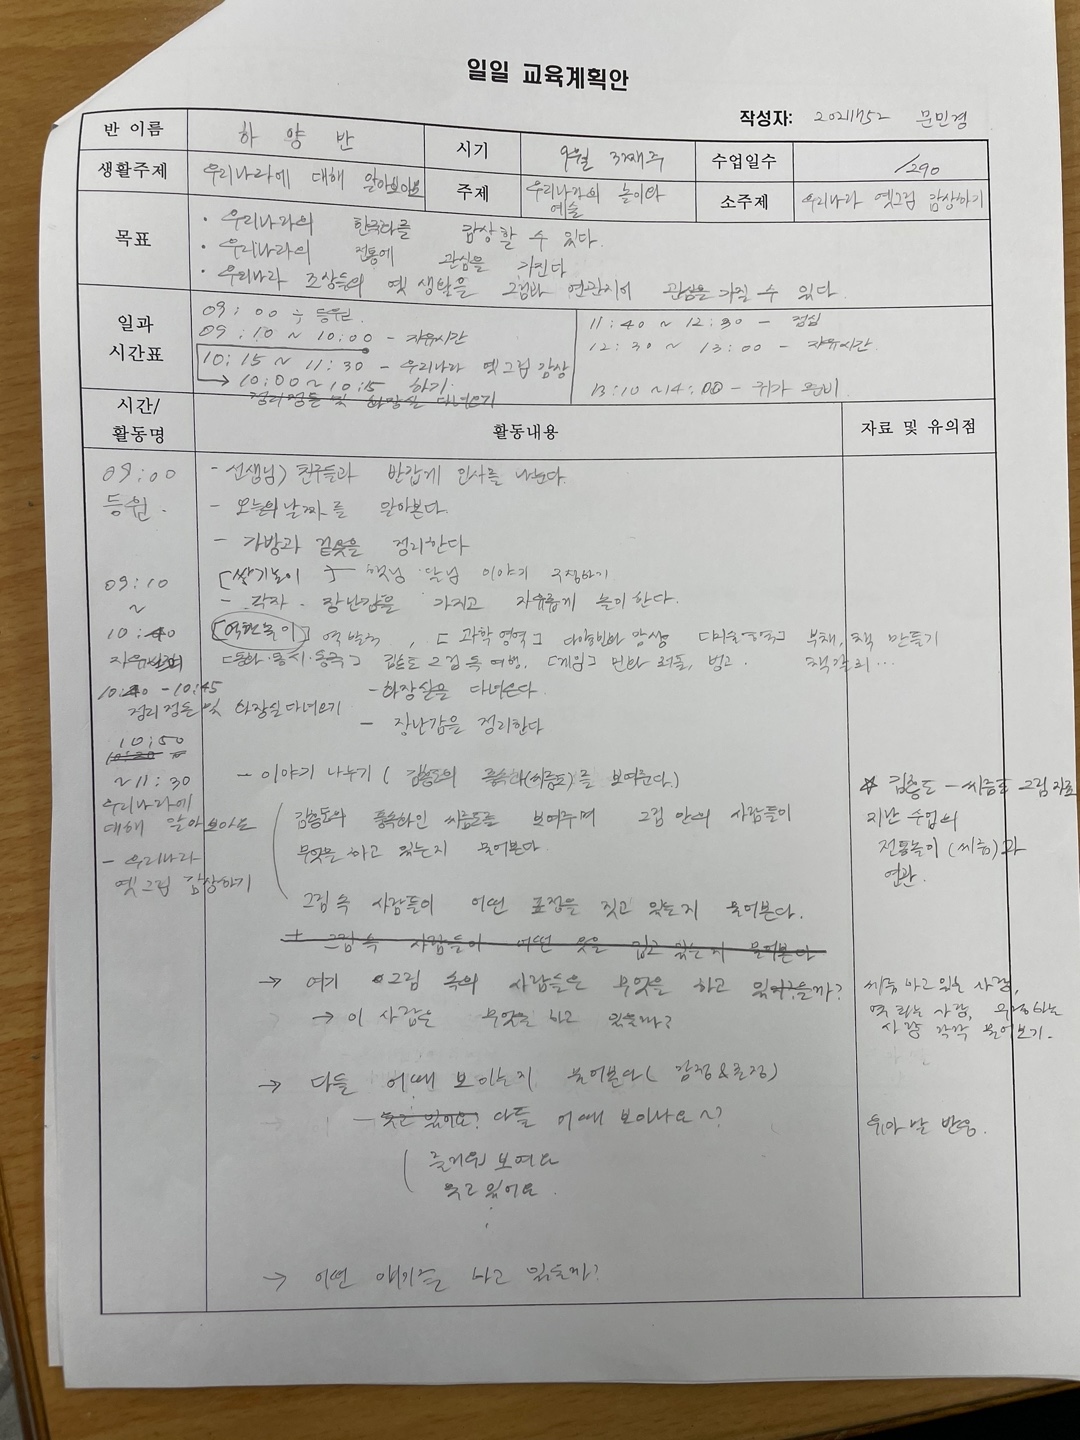 일일 교육계획안
작성자: 20211752 문민경
반 이름 하 양 반 시기 9월 3째주 수업일수 /290
생활주제 우리나라에 대해 알아보아요 주제 우리나라의 놀이와 예술 소주제 우리나라 옛그림 감상하기
목표
· 우리나라의 한국화를 감상할 수 있다.
· 우리나라의 전통에 관심을 가진다
· 우리나라 조상들의 옛 생활을 그림과 연관지어 관심을 가질 수 있다.
일과 시간표
09:00 ÷ 등원.
09:10 ~ 10:00 - 자유시간
10:15 ~ 11:30 - 우리나라 옛그림 감상하기.
→ 10:00 ~ 10:15
정리정돈 및 화장실 다녀오기
11:40 ~ 12:30 - 점심
12:30 ~ 13:00 - 자유시간.
13:10 ~ 14:00 - 귀가 준비
시간/활동명 활동내용 자료 및 유의점
09:00 등원.
- 선생님, 친구들과 반갑게 인사를 나눈다.
- 오늘의 날짜를 알아본다.
- 가방과 겉옷을 정리한다
09:10 ~ 10:40
[쌓기놀이] 햇님 달님 이야기 구성하기
- 각자 장난감을 가지고 자유롭게 놀이한다.
[역할놀이] , [과학영역] 감상 [미술영역] 부채, 책 만들기
[동화·동시·동극] 김홍도 그림 속 여행. [게임] 민화 퍼즐, 빙고. 책갈피...
10:40 - 10:45
정리정돈 및 화장실 다녀오기
- 화장실을 다녀온다.
- 장난감을 정리한다
10:50
~ 11:30
우리나라에
대해 알아보아요
- 우리나라
옛그림 감상하기
- 이야기 나누기 (김홍도의 풍속화(씨름도)를 보여준다.)
김홍도의 풍속화인 씨름도를 보여주며 그림 안의 사람들이
무엇을 하고 있는지 물어본다.
그림 속 사람들이 어떤 표정을 짓고 있는지 물어본다.
+ 그림 속 사람들이 어떤 옷을 입고 있는지 물어본다
→ 여기 그림 속의 사람들은 무엇을 하고 있을까?
→ 이 사람은 무엇을 하고 있을까?
→ 다들 어때 보이는지 물어본다 (감정&표정)
- 웃고 있어요! 다들 어때 보이나요~?
즐거워 보여요
웃고 있어요.
→ 어떤 얘기를 하고 있을까?
☆ 김홍도 - 씨름도 그림 자료
지난 수업의
전통놀이 (씨름)과
연관.
씨름하고 있는 사람,
엿 파는 사람, 사람 각각 물어보기.
유아 날 반응.